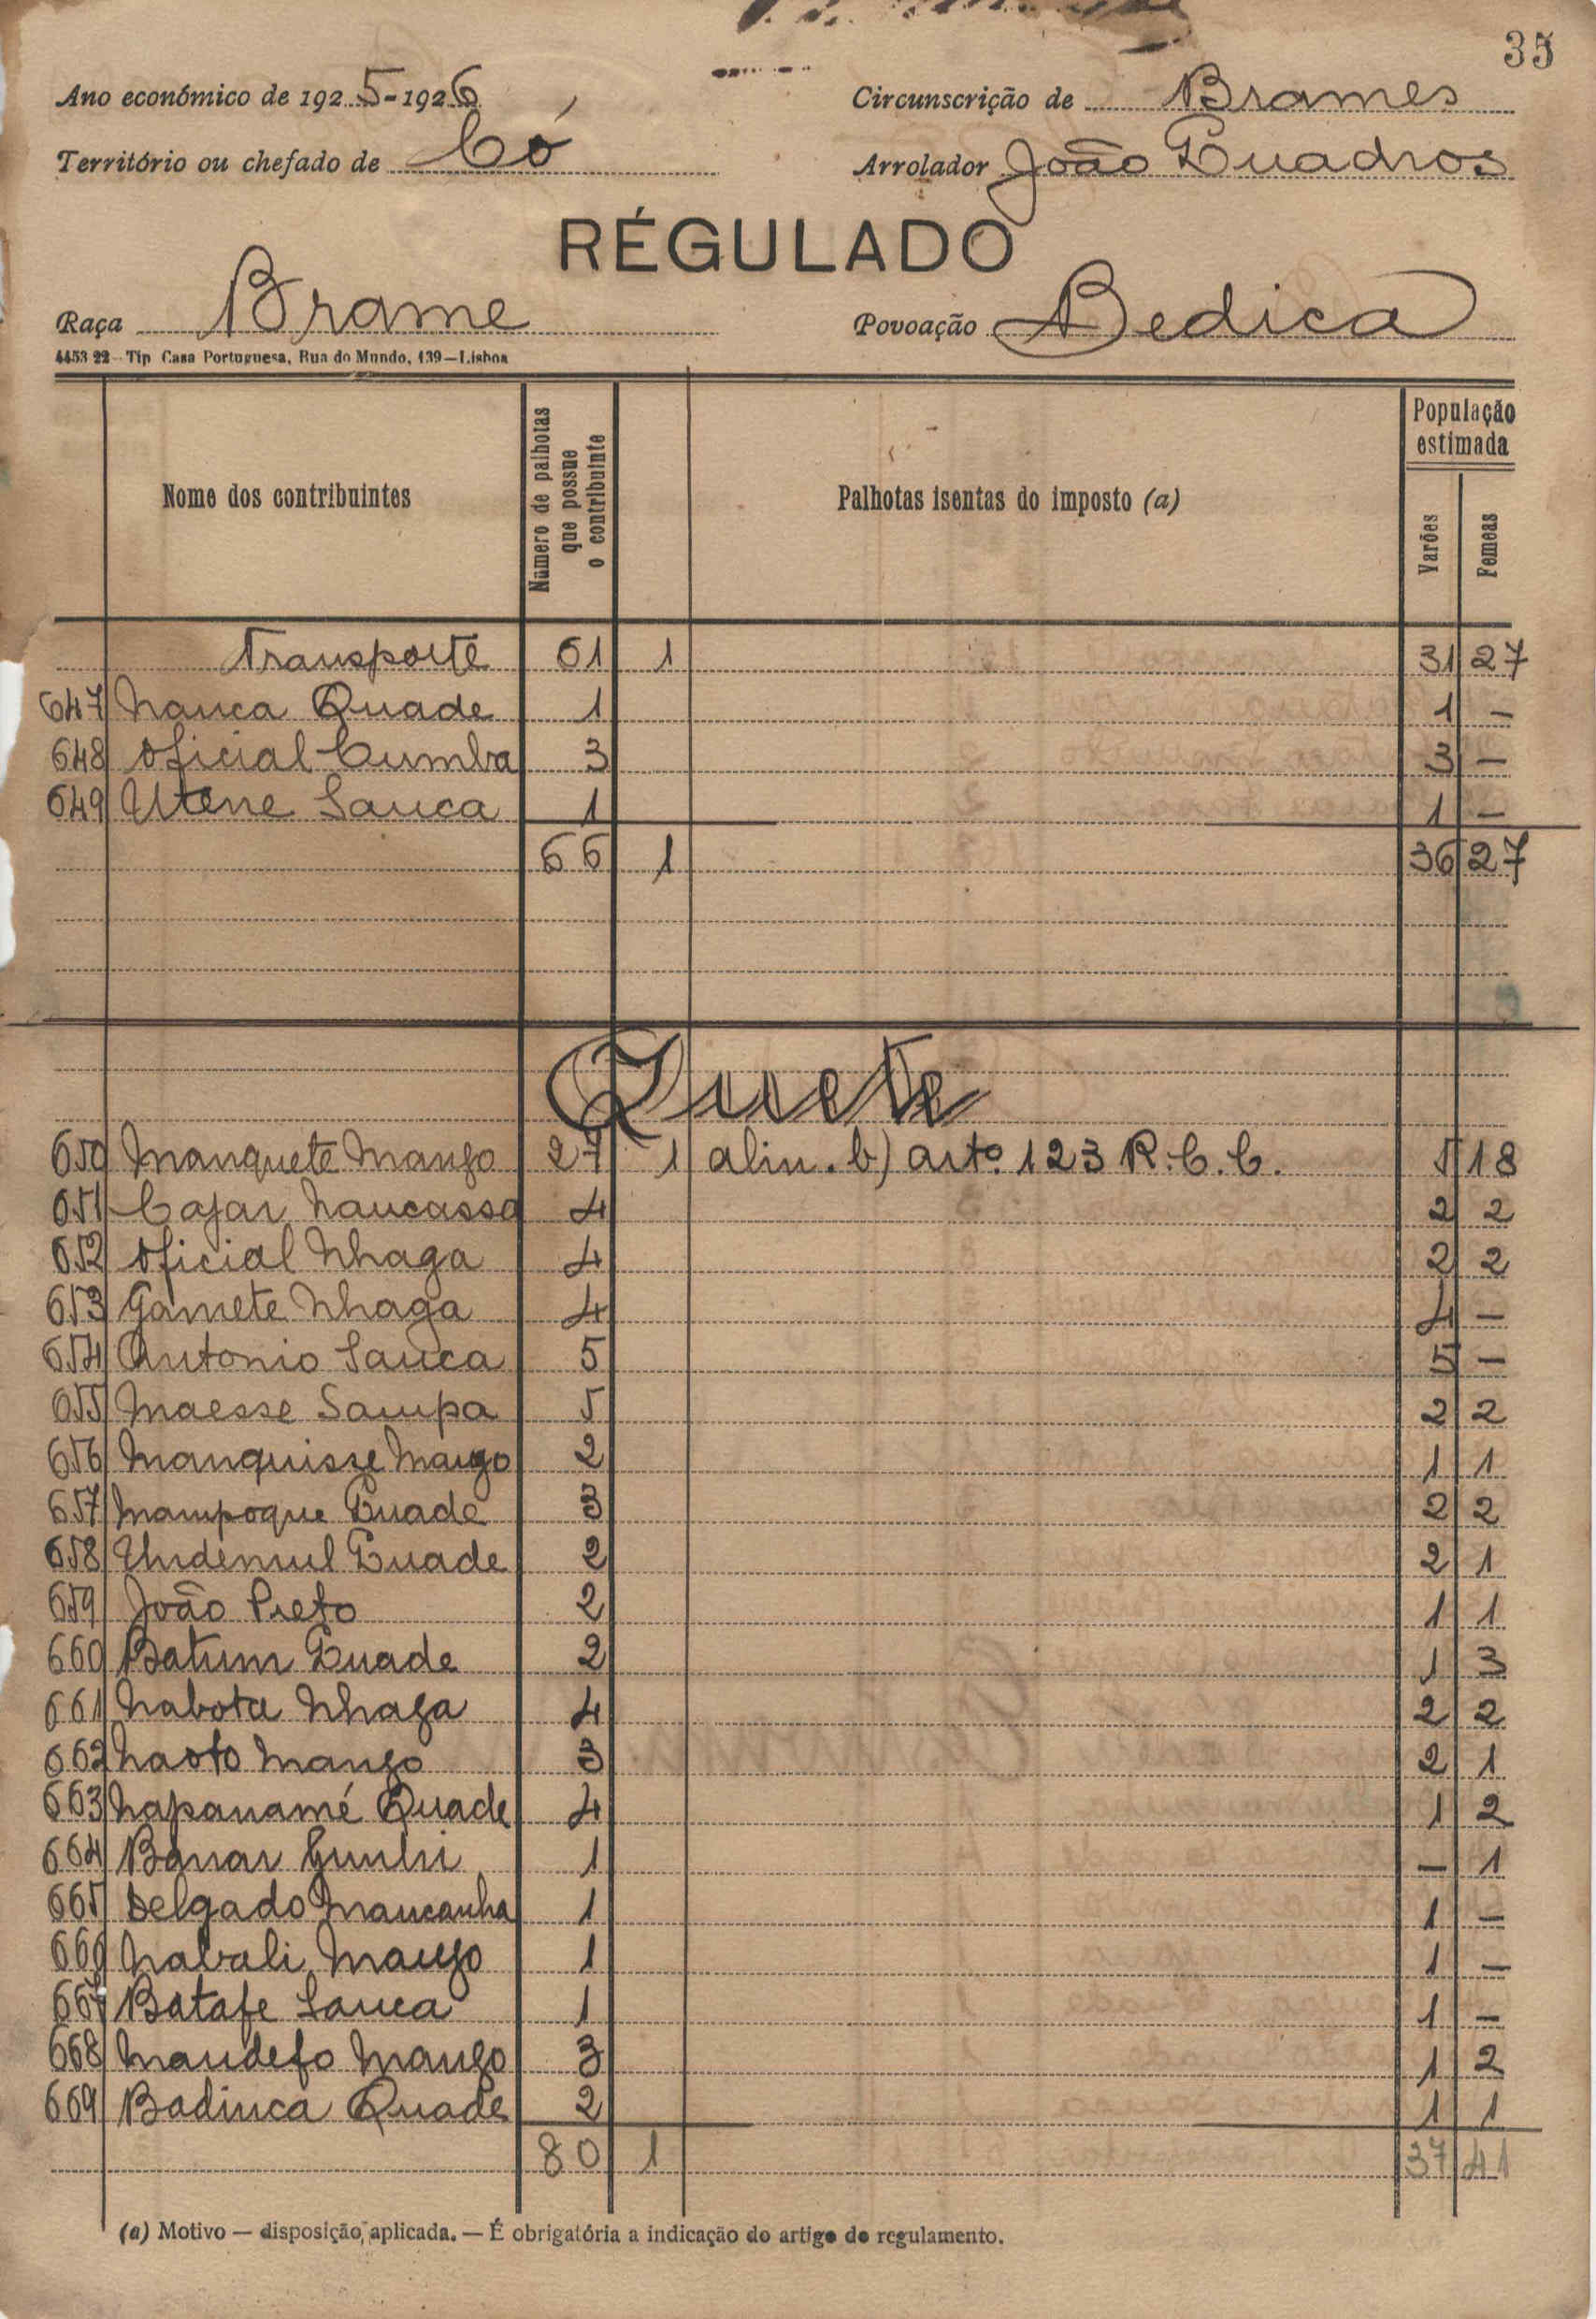 35
Ano económico de 1925-1926
Circunscrição de Brames
Território ou chefado de Có
Arrolador João Quadros
RÉGULADO
Raça Brame
Povoação Bedica
4453 22 - Tip Casa Portuguesa, Rua do Mundo, 139 - Lisboa
Nome dos contribuintes
Número de palhotas que possue o contribuinte
Palhotas isentas do imposto (a)
População estimada
Varões
Femeas
Transporte 61 1 31 27
647 Nanca Quade 1 1 -
648 Oficial Cumba 3 3 -
649 Utene Sanca 1 1 -
66 1 36 27
Quete
650 Manquete Mango 27 1 alin. b) artº 123 R. C. C. 5 18
651 Cajar Naucassa 4 2 2
652 Oficial Nhaga 4 2 2
653 Gamete Nhaga 4 4 -
654 Antonio Sanca 5 5 -
655 Maesse Sampa 5 2 2
656 Manquisse Mango 2 1 1
657 Mampoque Quade 3 2 2
658 Undemul Quade 2 2 1
659 João Preto 2 1 1
660 Batum Quade 2 1 3
661 Nabota Nhaga 4 2 2
662 Nasto Mango 3 2 1
663 Napanamé Quade 4 1 2
664 Banar 1 - 1
665 Delgado Mancanha 1 1 -
666 Nabali Mango 1 1 -
667 Batafe Sanca 1 1 -
668 Mandefo Mango 3 1 2
669 Badinca Quade 2 1 1
80 1 37 41
(a) Motivo — disposição aplicada. — É obrigatória a indicação do artigo do regulamento.